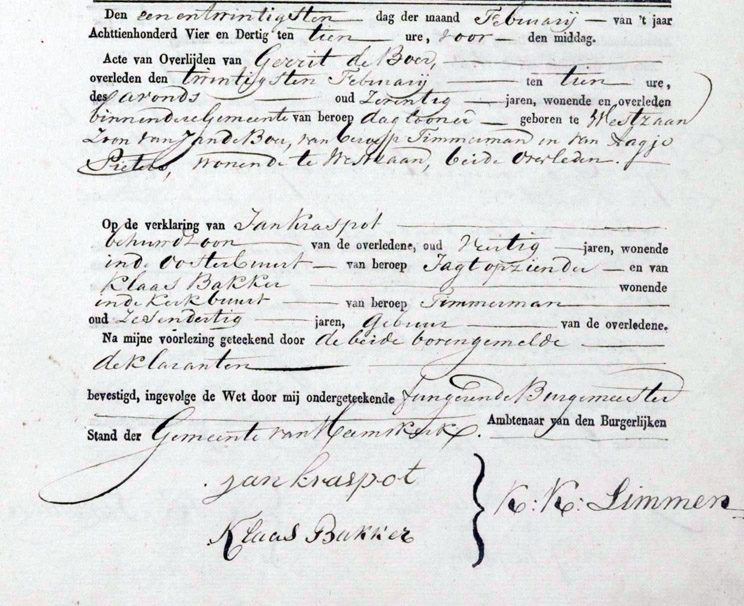 Den een en twintigsten dag der maand Februarij van 't jaar
Achttienhonderd Vier en Dertig ten tien ure, voor den middag.
Acte van Overlijden van Gerrit de Boer,
overleden den twintigsten Februarij ten tien ure,
des avonds oud Zeventig jaren, wonende en overleden
binnen deze Gemeente van beroep daglooner geboren te Westzaan
Zoon van Jan de Boer, van beroep Timmerman en van Aagje
Pieters, wonende te Westzaan, beide Overleden.
Op de verklaring van Jan Kraspot
behuwdzoon van de overledene, oud Veertig jaren, wonende
in de Oosterbuurt van beroep Jagtopziender en van
Klaas Bakker wonende
in de Kerkbuurt van beroep Timmerman
oud Zesendertig jaren, Gebuur van de overledene.
Na mijne voorlezing geteekend door de beide bovengemelde
deklaranten
bevestigd, ingevolge de Wet door mij ondergeteekende fungerende Burgemeester
Ambtenaar van den Burgerlijken
Stand der Gemeente van Heemskerk.
Jan kraspot
Klaas Bakker
K: K: Limmen